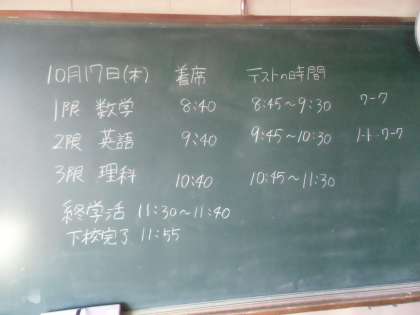 10月17日(木) 着席 テストの時間
1限 数学 8:40 8:45～9:30 ワーク
2限 英語 9:40 9:45～10:30 ノート・ワーク
3限 理科 10:40 10:45～11:30
終学活 11:30～11:40
下校完了 11:55